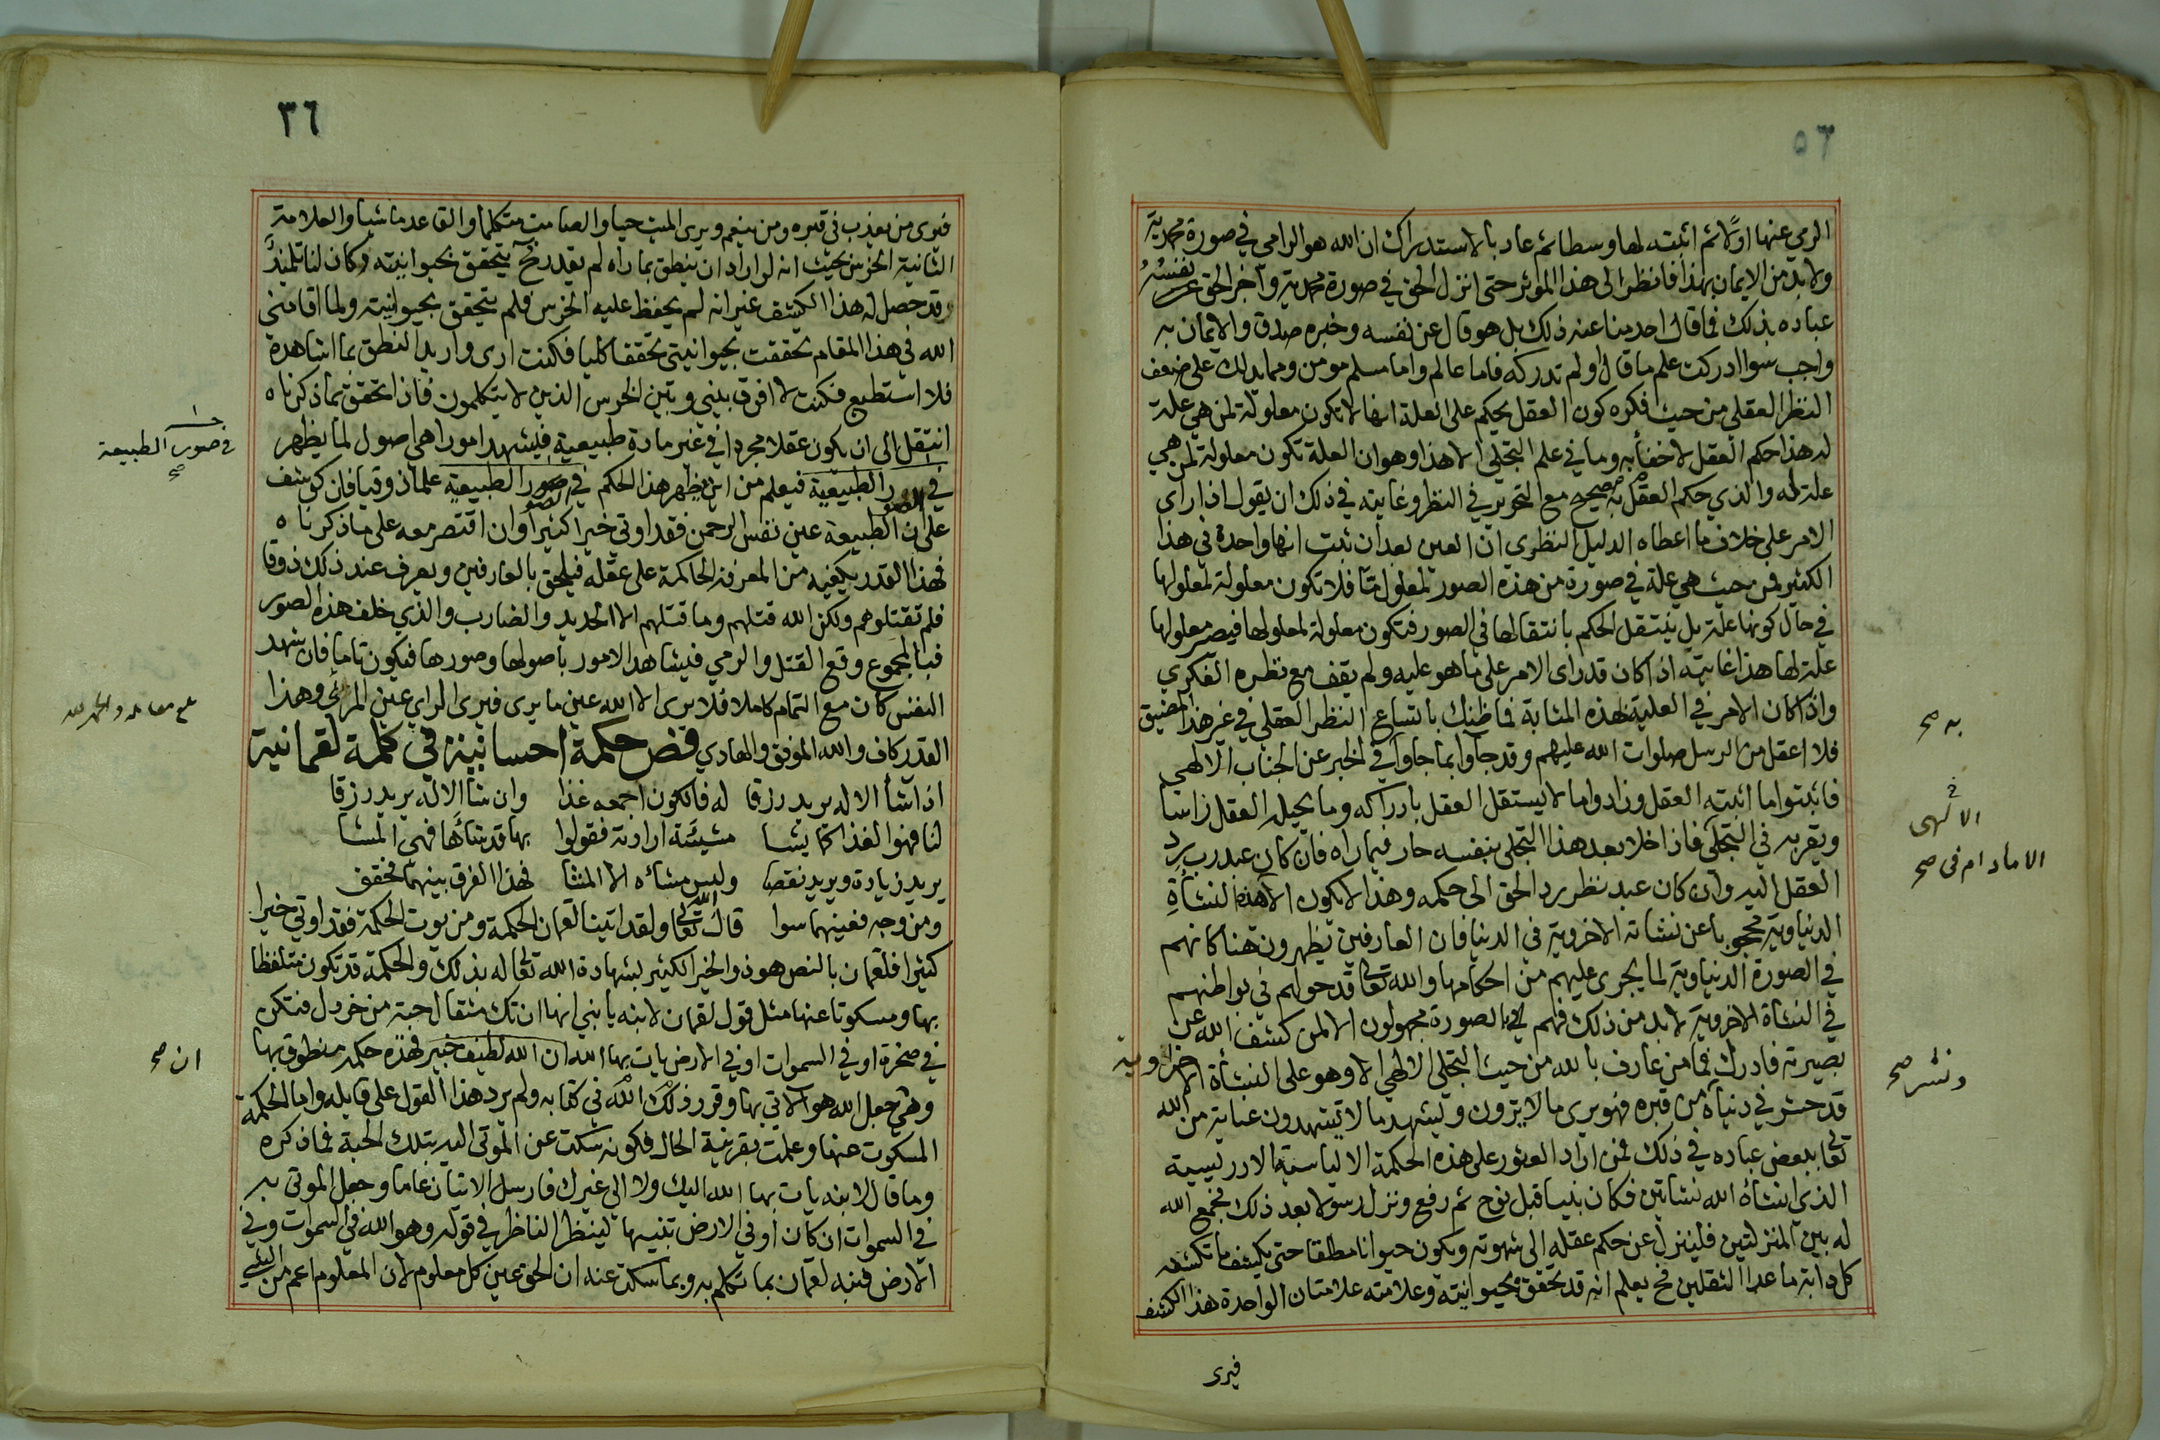 ٥٦
الرمي عنها اولا ثم اثبته لها وسطا ثم عاد بالاستدراك ان الله هو الرامي في صورة محمدية
ولا بد من الايمان بهذا فانظر الى هذا الموثر حتى انزل الحق في صورة محمدية واخبر الحق نفسه
عباده بذلك فما قال احد منا عنه ذلك بل هو قال عن نفسه وخبره صدق والايمان به
واجب سوا ادركت علم ما قال او لم تدركه فاما عالم واما مسلم مومن ومما يدلك على ضعف
النظر العقلي من حيث فكره كون العقل يحكم على العلة انها لا تكون معلولة لمن هي علة
له هذا حكم العقل لا خفا به وما في علم التجلي الا هذا وهو ان العلة تكون معلولة لمن هي
علة له والذي حكم العقل به صحيح مع التحرير في النظر وغايته في ذلك ان يقول اذا راى
الامر على خلاف ما اعطاه الدليل النظري ان العين بعد ان ثبت انها واحدة في هذا
الكثير فمن حيث هي علة في صورة من هذه الصور لمعلول ما فلا تكون معلولة لمعلولها
في حال كونها علة بل ينتقل الحكم بانتقالها في الصور فتكون معلولة لمعلولها فيصير معلولها
علة لها هذا غايته اذا كان قد راى الامر على ما هو عليه ولم يقف مع نظره الفكري
واذا كان الامر في العلية بهذه المثابة فما ظنك باتساع النظر العقلي في غير هذا المضيق
فلا اعقل من الرسل صلوات الله عليهم وقد جاوا بما جاوا في الخبر عن الجناب الالهي
فاثبتوا ما اثبته العقل وزادوا ما لا يستقل العقل بادراكه وما يحيله العقل راسا
ويقر به في التجلي فاذا خلا بعد هذا التجلي بنفسه حار فيما راه فان كان عبد رب رد
العقل اليه وان كان عبد نظر رد الحق الى حكمه وهذا لا يكون الا هذه النشأة
الدنياوية محجوبا عن نشاته الاخروية في الدنيا فان العارفين يظهرون هنا كانهم
في الصورة الدنياوية لما يجرى عليهم من احكامها والله تعالى قد حولهم في بواطنهم
في النشأة الاخروية لا بد من ذلك فهم بالصورة مجهولون الا لمن كشف الله عن
بصيرته فادرك فما من عارف بالله من حيث التجلي الالهي الا وهو على النشأة الاخراوية
قد حشر في دنياه من قبره فهو يرى ما لا يرون ويشهد ما لا يشهدون عناية من الله
تعالى ببعض عباده في ذلك فمن اراد العثور على هذه الحكمة الالياسية الادريسية
الذي انشاه الله نشاتين فكان نبيا قبل نوح ثم رفع ونزل رسولا بعد ذلك فجمع الله
له بين المنزلتين فلينزل عن حكم عقله الى شهوته ويكون حيوانا مطلقا حتى يكشف ما تكشفه
كل دابة ما عدا الثقلين فح يعلم انه قد تحقق بحيوانيته وعلامته علامتان الواحدة هذا الكشف
فيرى
به صح
الالهى
الا مادام في صح
ونشر صح
٣٦
فيرى من يعذب في قبره ومن ينعم ويرى الميت حيا والصامت متكلما والقاعد ماشيا والعلامة
الثانية الخرس بحيث انه لو اراد ان ينطق بما راه لم يقدر فح يتحقق بحيوانيته وكان لنا تلميذ
وقد حصل له هذا الكشف غير انه لم يحفظ عليه الخرس فلم يتحقق بحيوانيته ولما اقامني
الله في هذا المقام تحققت بحيوانيتي تحققا كليا فكنت ارى واريد النطق بما اشاهده
فلا استطيع فكنت لا افرق بيني وبين الخرس الذين لا يتكلمون فاذا تحقق بما ذكرناه
انتقل الى ان يكون عقلا مجردا في غير مادة طبيعية فيشهد امورا هي اصول لما يظهر
في صور الطبيعية فيعلم من اين يظهر هذا الحكم في صور الطبيعية علما ذوقيا فان كوشف
على ان الطبيعة عين نفس الرحمن فقد اوتي خيرا كثيرا وان اقتصر معه على ما ذكرناه
فهذا القدر يكفيه من المعرفة الحاكمة على عقله فيلحق بالعارفين ويعرف عند ذلك ذوقا
فلم تقتلوهم ولكن الله قتلهم وما قتلهم الا الحديد والضارب والذي خلف هذه الصور
فبالمجموع وقع القتل والرمي فيشاهد الامور باصولها وصورها فيكون تاما فان شهد
النفس كان مع التمام كاملا فلا يرى الا الله عين ما يرى فيرى الراي عين المرئي وهذا
القدر كاف والله الموفق والهادي فص حكمة احسانية في كلمة لقمانية
اذا شأ الاله يريد رزقا له فالكون اجمعه غذا وان شا الاله يريد رزقا
لنا فهو الغذا كما يشا مشيئته ارادته فقولوا بها قد شاءها فهي المشا
يريد زيادة ويريد نقصا وليس مشاءه الا المشا فهذا الفرق بينهما فحقق
ومن وجه فعينهما سوا قال الله تعالى ولقد اتينا لقمان الحكمة ومن يوت الحكمة فقد اوتي خيرا
كثيرا فلقمان بالنص هو ذو الخير الكثير بشهادة الله تعالى له بذلك والحكمة قد تكون متلفظا
بها ومسكوتا عنها مثل قول لقمان لابنه يا بني انها ان تك مثقال حبة من خردل فتكن
في صخرة او في السموات او في الارض يات بها الله ان الله لطيف خبير فهذه حكمة منطوق بها
وهي جعل الله هو الاتي بها وقرر ذلك الله في كتابه ولم يرد هذا القول على قايله واما الحكمة
المسكوت عنها وعلمت بقرينة الحال فكونه سكت عن الموتى اليه بتلك الحبة فما ذكره
وما قال لابنه يات بها الله اليك ولا الى غيرك فارسل الاتيان عاما وجعل الموتى به
في السموات ان كان او في الارض تنبيها لينظر الناظر في قوله وهو الله في السموات وفي
الارض فنبه لقمان بما تكلم به وبما سكت عنه ان الحق عين كل معلوم لان المعلوم اعم من الشي
في صور الطبيعة صح
ان صح